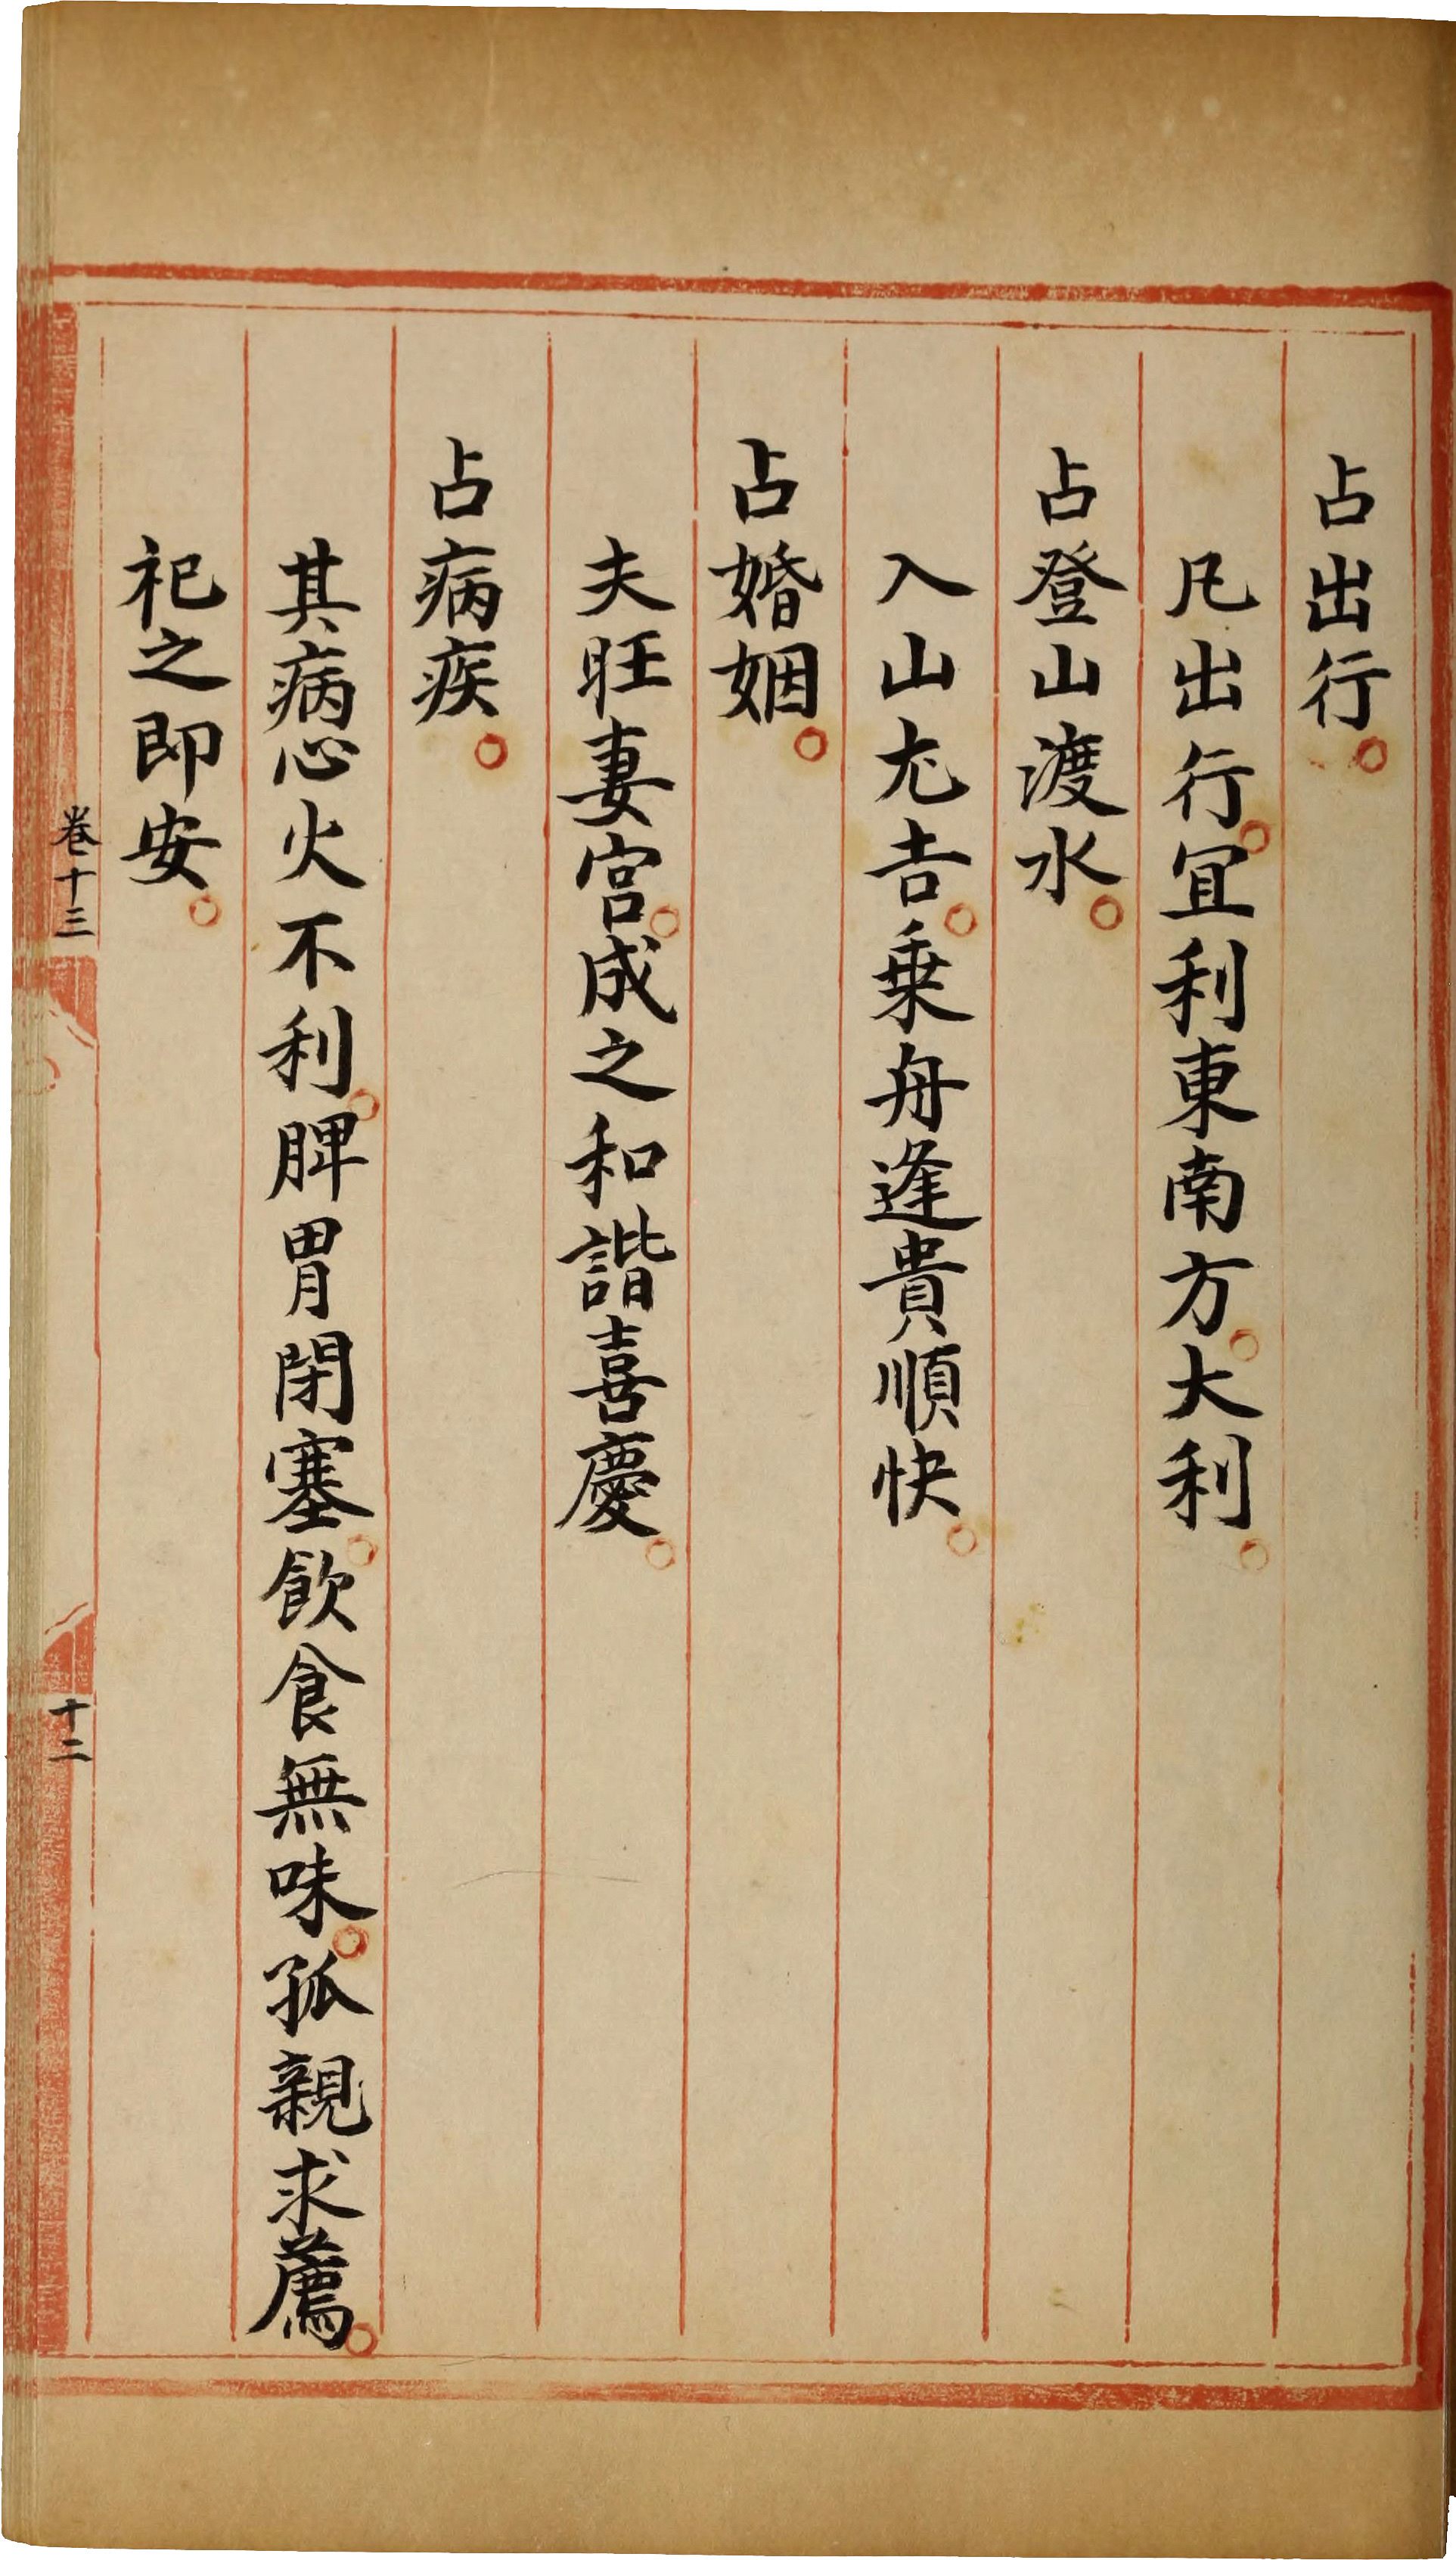 占出行。
凡出行。宜利東南方。大利。
占登山渡水。
入山尤吉。乗舟逢貴順快。
占婚姻。
夫旺妻宮。成之和諧喜慶。
占病疾。
其病心火不利。脾胃閉塞。飲食無味。孤親求薦。
祀之即安。
卷十三
十二